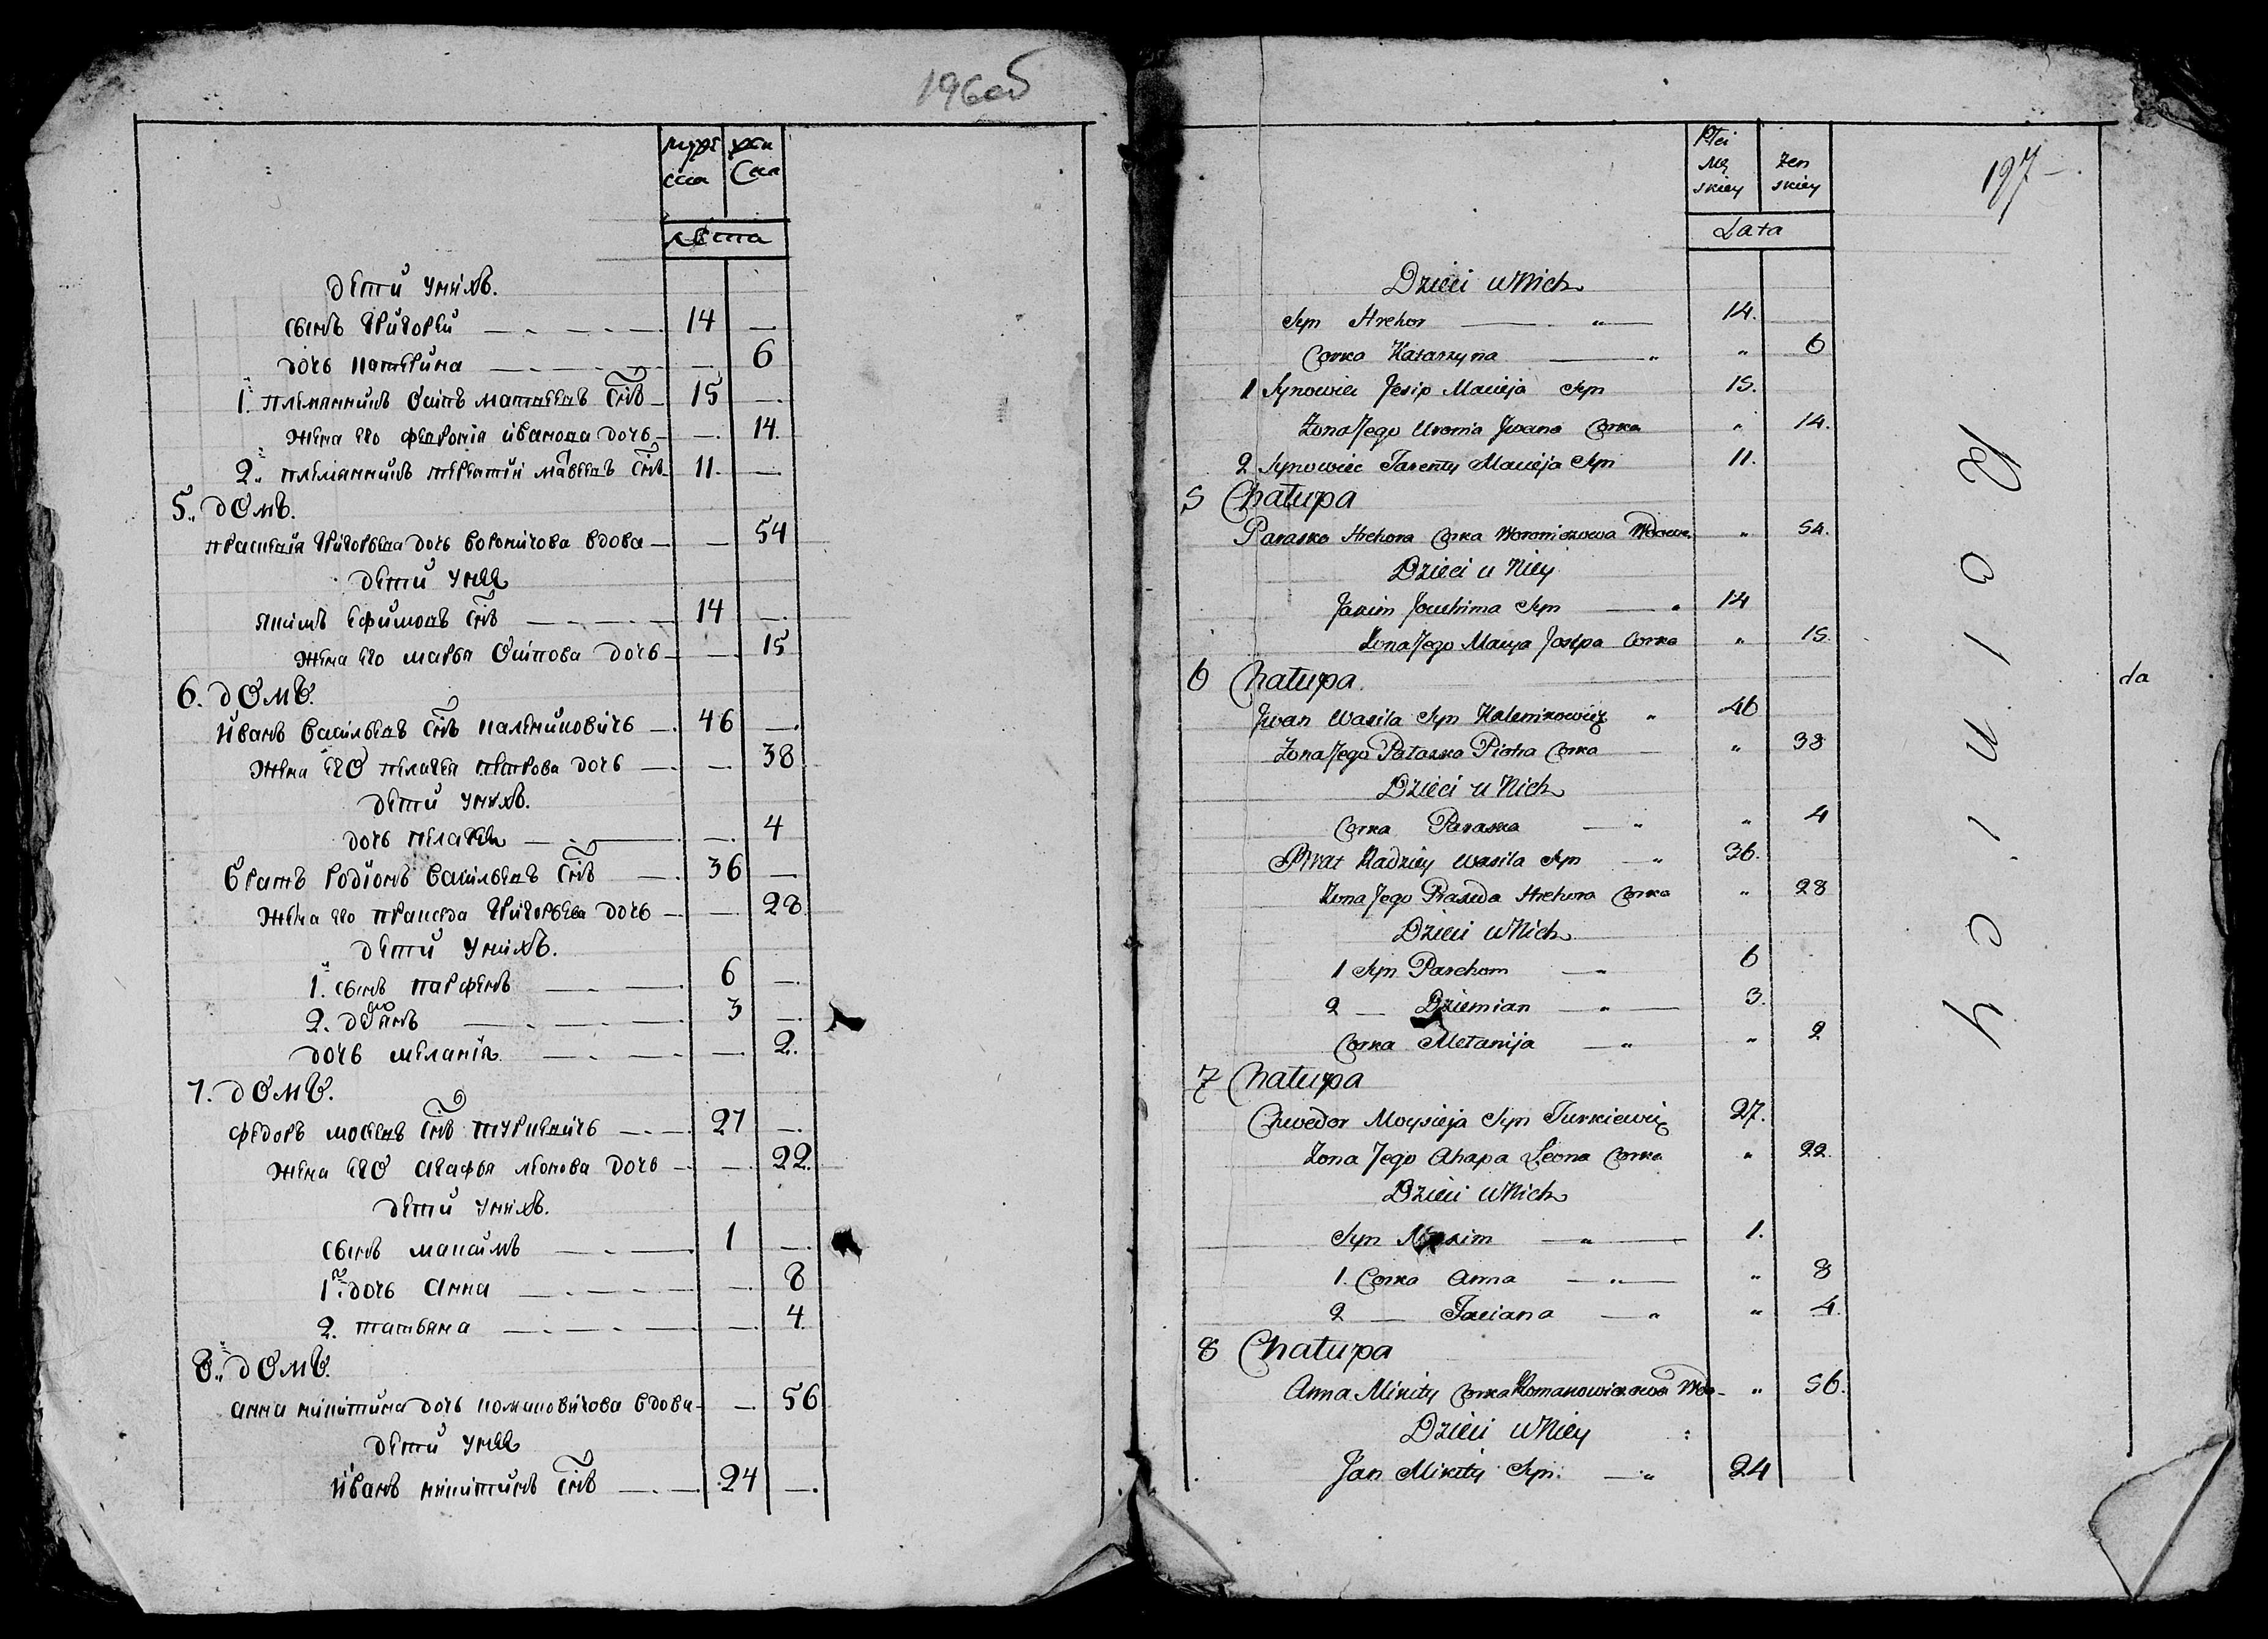 196об
мужеска женска
лѣта
дети унихъ.
сынъ Григорей 14 —
дочь катерина — 6
1. племянникъ Осипъ матвеевъ снъ 15 —
жена его феврония иванова дочь — 14.
2. племянникъ терентий мавеевъ снъ 11. —
5. дОмъ.
прасковія Григорьева дочь вороничова вдова — 54
дети унея
якимъ ефимовъ снъ 14 —
жена его марья Осипова дочь — 15
6. дОмъ.
Иванъ васильевъ снъ калениковичь 46 —
жена его пелагея петрова дочь — 38
дети унихъ.
дочь пелагея — 4
братъ родіонъ васильевъ снъ 36 —
жена его пракседа Григорьева дочь — 28
дети унихъ.
1. сынъ парфенъ 6 —
2. демянъ 3 —
дочь меланія — 2.
7. дОмъ.
федоръ мосеевъ снъ туркевичь 27 —
жена его агафья леонова дочь — 22.
дети унихъ.
сынъ максимъ 1 —
1. дочь анна — 8
2. татьяна — 4
8. дОмъ.
анна никитина дочь вдова — 56
дети унея
Иванъ никитинъ снъ 24 —
197
Płci
Mę skiey żen skiey
Lata
Dzieci u Nich
Syn Hrehor 14.
Corka Katarzyna " 6
1 Synowiec Jesip Macieja Syn 15.
Zona Jego Jwana Corka " 14.
2 Synowiec Tarenty Macieja Syn 11.
5 Chałupa
Paraska Hrehora Corka Woroniczowa Wdowa " 54.
Dzieci u Niey
Jakim Jouchima Syn 14
Zona Jego Marya Josipa Corka " 15.
6 Chałupa
Jwan Wasila Syn Kalenikowicz " 46
Zona Jego Piotra Corka " 38
Dzieci u Nich
Corka Paraska " 4
Brat Radziey Wasila Syn 36.
Zona Jego Praxeda Hrehora Corka " 28
Dzieci u Nich
1 Syn Parchom 6
2 — Dziemian 3.
Corka Mełanija " 2
7 Chałupa
Chwedor Moysieja Syn Turkiewicz 27.
Zona Jego Ahapa Leona Corka " 22.
Dzieci u Nich
Syn Maxim 1.
1. Corka Anna " 8
2 — Taciana " 4.
8 Chałupa
Anna Mikity Corka Wdo " 56.
Dzieci u Niey
Jan Mikity Syn. 24
da